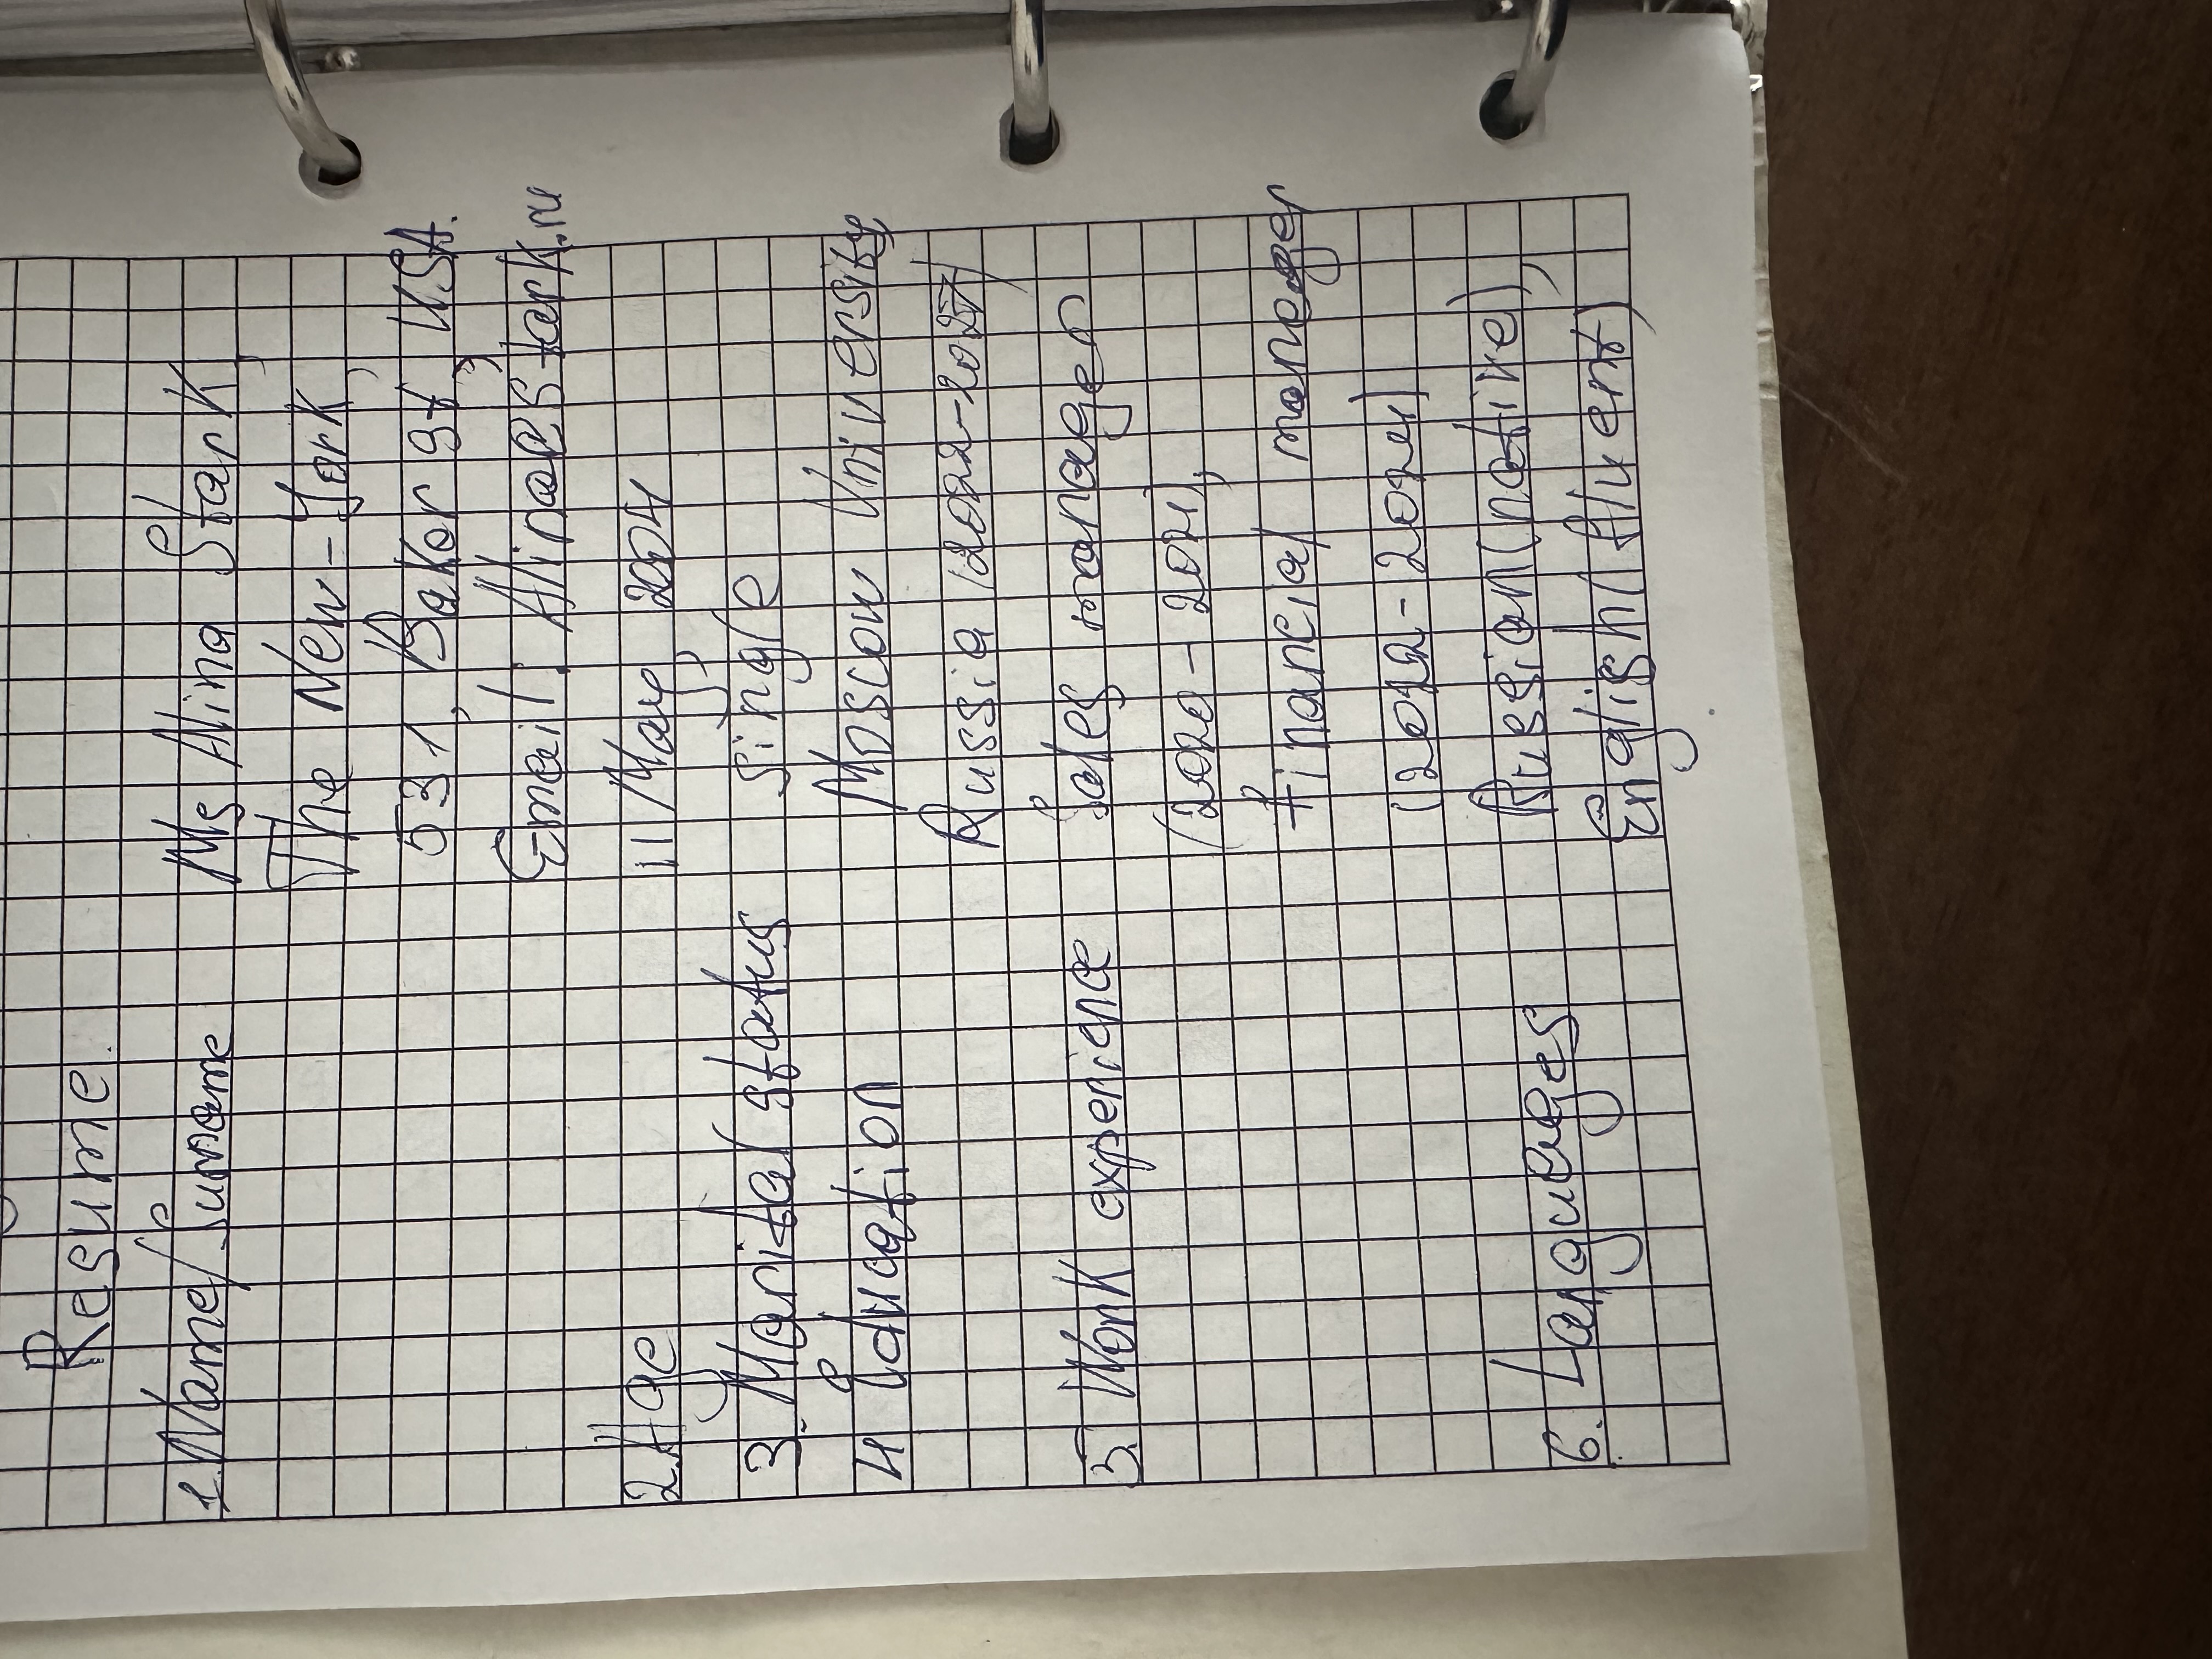 Resume.
1. Name/Surname Ms Alina Stark,
The New-York,
531, Baker st, USA.
Email: AlinaSStark.ru
2. Age 11 May, 2004
3. Marital status Single
4 Education Moscow University
Russia (2022-2027)
5 Work experience Sales manager
(2020-2021),
financial maneger
(2022-2024)
6. Langueges Russian (native),
English (fluent)